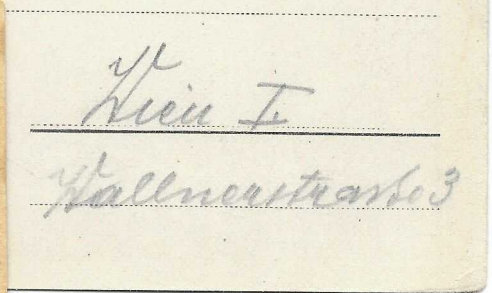 Wien I.
Wallnerstrasse 3